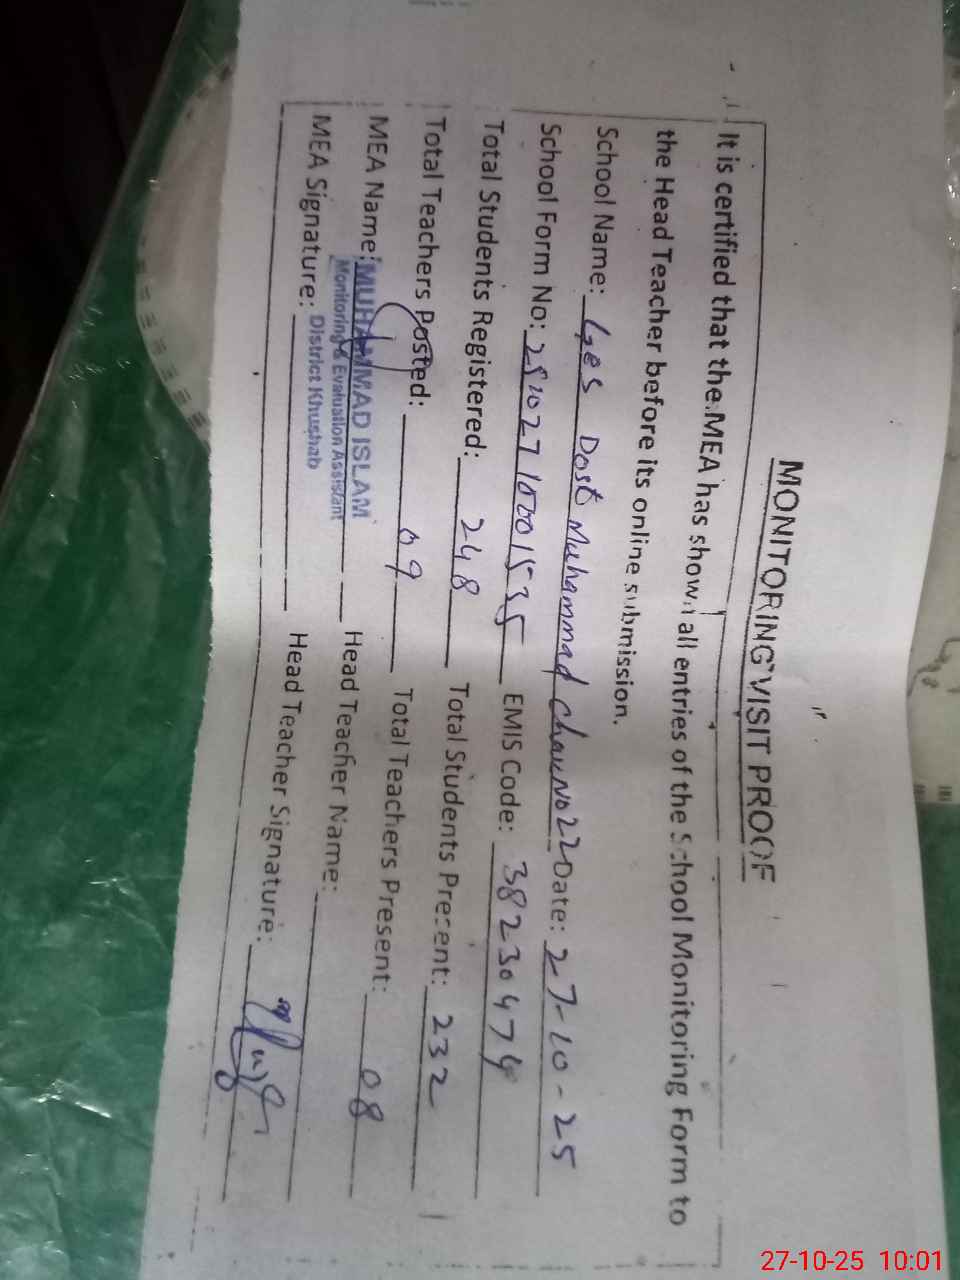 MONITORING VISIT PROOF
It is certified that the MEA has shown all entries of the School Monitoring Form to
the Head Teacher before its online submission.
School Name: Ges Dost Muhammad Date: 27-10-25
School Form No: EMIS Code: 38230474
Total Students Registered: 248 Total Students Present: 232
Total Teachers Posted: 09 Total Teachers Present: 08
MEA Name: MUHAMMAD ISLAM Head Teacher Name:
Monitoring & Evaluation Assistant
MEA Signature: District Khushab Head Teacher Signature:
27-10-25 10:01